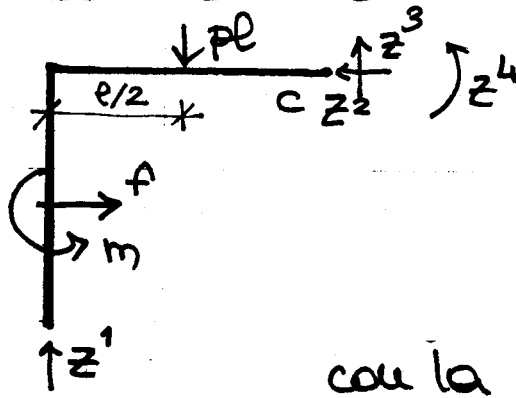 pl
z³
l/2
c z²
z⁴
f
m
z¹
con la